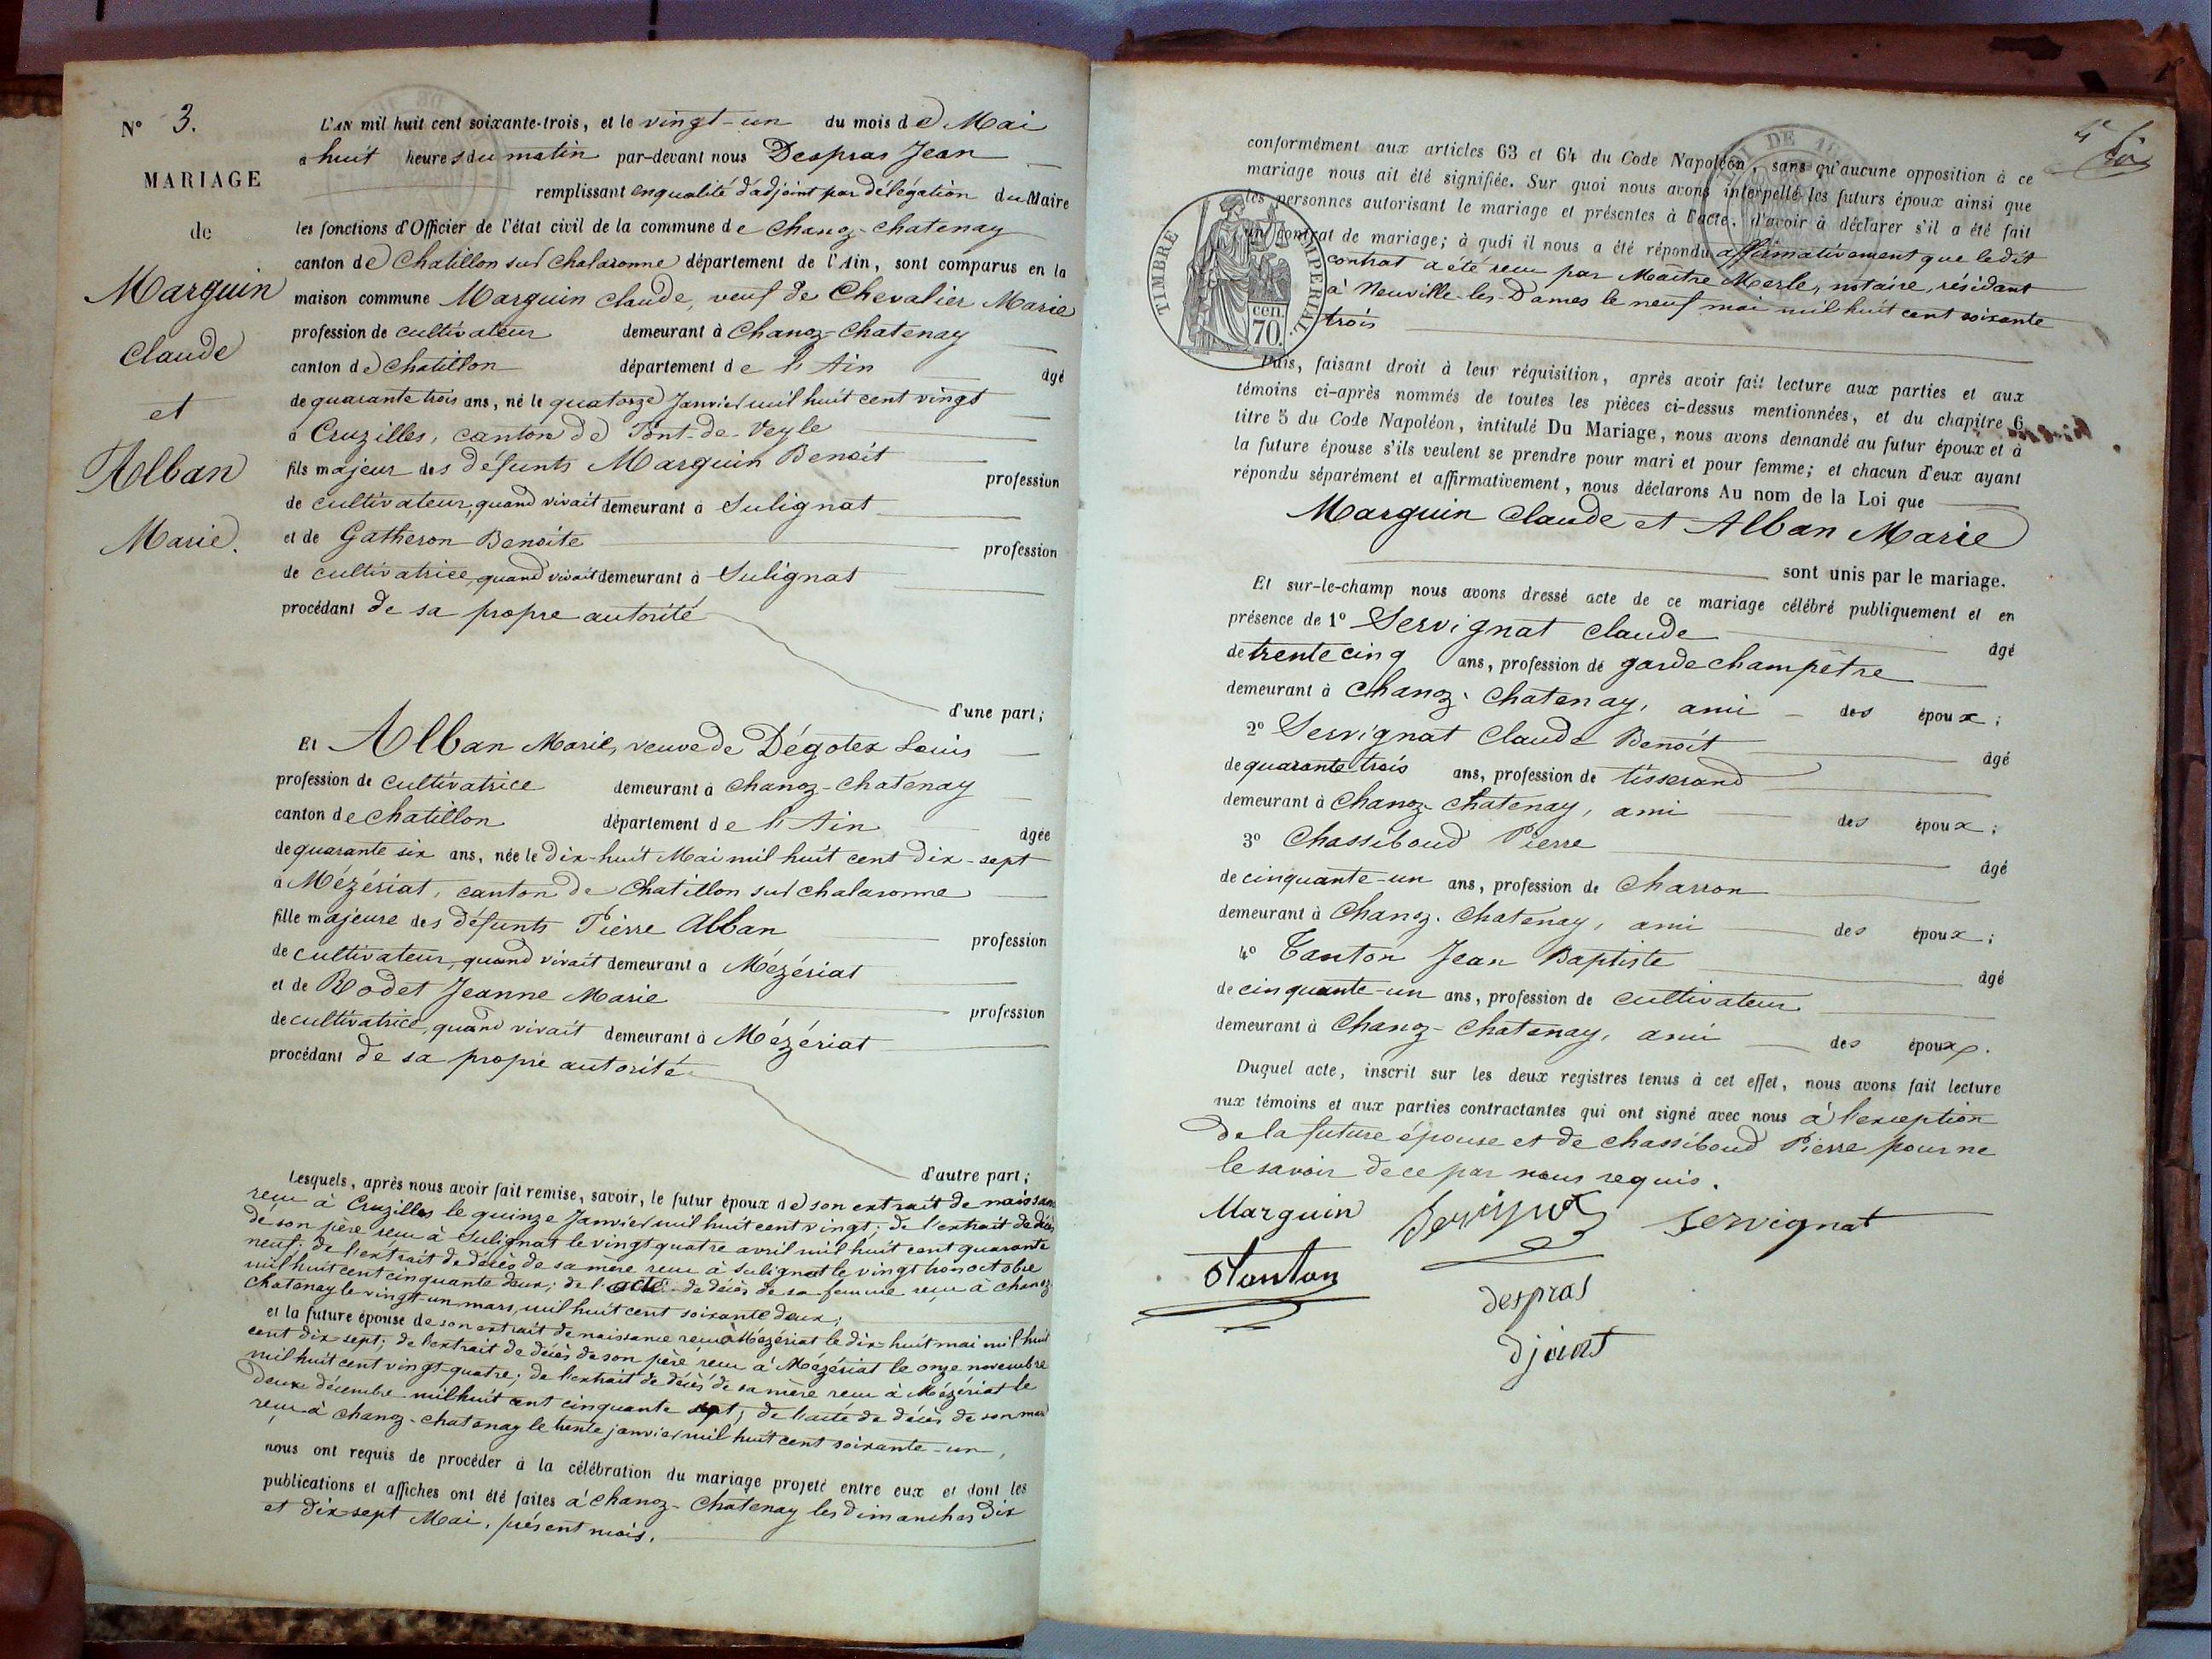 N° 3.
MARIAGE
de
Marguin
Claude
et
Alban
Marie.
L'AN mil huit cent soixante-trois, et le vingt-un du mois de Mai
à huit heures du matin par-devant nous Despras Jean
remplissant en qualité d'adjoint par délégation du Maire
les fonctions d'Officier de l'état civil de la commune de Chanoz-Chatenay
canton de Chatillon sur Chalaronne département de l'Ain, sont comparus en la
maison commune Marguin Claude, veuf de Chevalier Marie
profession de cultivateur demeurant à Chanoz-Chatenay
canton de Chatillon département de l'Ain âgé
de quarante trois ans, né le quatorze Janvier mil huit cent vingt
à Cruzilles, canton de Pont-de-Veyle
fils majeur des défunts Marguin Benoit profession
de cultivateur, quand vivait demeurant à Sulignat
et de Gatheron Benoite profession
de cultivatrice, quand vivait demeurant à Sulignat
procédant de sa propre autorité
d'une part;
Et Alban Marie, veuve de Dégotex Louis
profession de cultivatrice demeurant à Chanoz-Chatenay
canton de Chatillon département de l'Ain âgée
de quarante six ans, née le dix-huit Mai mil huit cent dix-sept
à Mézériat, canton de Chatillon sur Chalaronne
fille majeure des défunts Pierre Alban profession
de cultivateur, quand vivait demeurant à Mézériat
et de Rodet Jeanne Marie profession
de cultivatrice, quand vivait demeurant à Mézériat
procédant de sa propre autorité
d'autre part;
Lesquels, après nous avoir fait remise, savoir, le futur époux de son extrait de naissance
reçu à Cruzilles le quinze Janvier mil huit cent vingt; de l'extrait de décès
de son père reçu à Sulignat le vingt quatre avril mil huit cent quarante
neuf; de l'extrait de décès de sa mère reçu à Sulignat le vingt trois octobre
mil huit cent cinquante deux; de l'acte de décès de sa femme reçu à Chanoz
Chatenay le vingt-un mars, mil huit cent soixante deux;
et la future épouse de son extrait de naissance reçu à Mézériat le dix-huit mai mil huit
cent dix sept; de l'extrait de décès de son père reçu à Mézériat le onze novembre
mil huit cent vingt-quatre; de l'extrait de décès de sa mère reçu à Mézériat le
deux décembre mil huit cent cinquante sept; de l'acte de décès de son mari
reçu à Chanoz-Chatenay le trente janvier mil huit cent soixante-un,
nous ont requis de procéder à la célébration du mariage projeté entre eux et dont les
publications et affiches ont été faites à Chanoz-Chatenay les dimanches dix
et dix sept Mai, présent mois.
conformément aux articles 63 et 64 du Code Napoléon, sans qu'aucune opposition à ce
mariage nous ait été signifiée. Sur quoi nous avons interpellé les futurs époux ainsi que
les personnes autorisant le mariage et présentes à l'acte, d'avoir à déclarer s'il a été fait
un contrat de mariage; à quoi il nous a été répondu affirmativement que ledit
contrat a été reçu par Maître Merle, notaire, résidant
à Neuville-les-Dames le neuf mai mil huit cent soixante
trois
TIMBRE IMPERIAL
cen.
70.
Puis, faisant droit à leur réquisition, après avoir fait lecture aux parties et aux
témoins ci-après nommés de toutes les pièces ci-dessus mentionnées, et du chapitre 6
titre 5 du Code Napoléon, intitulé Du Mariage, nous avons demandé au futur époux et à
la future épouse s'ils veulent se prendre pour mari et pour femme; et chacun d'eux ayant
répondu séparément et affirmativement, nous déclarons Au nom de la Loi que
Marguin Claude et Alban Marie
sont unis par le mariage.
Et sur-le-champ nous avons dressé acte de ce mariage célébré publiquement et en
présence de 1° Servignat Claude âgé
de trente cinq ans, profession de garde champêtre
demeurant à Chanoz-Chatenay, ami des époux;
2° Servignat Claude Benoit âgé
de quarante trois ans, profession de tisserand
demeurant à Chanoz-Chatenay, ami des époux;
3° Chassiboud Pierre âgé
de cinquante-un ans, profession de charron
demeurant à Chanoz-Chatenay, ami des époux;
4° Tanton Jean Baptiste âgé
de cinquante-un ans, profession de cultivateur
demeurant à Chanoz-Chatenay, ami des époux.
Duquel acte, inscrit sur les deux registres tenus à cet effet, nous avons fait lecture
aux témoins et aux parties contractantes qui ont signé avec nous à l'exception
de la future épouse et de Chassiboud Pierre pour ne
le savoir de ce par nous requis.
Marguin Servignat Servignat
Tanton
despras
djoint